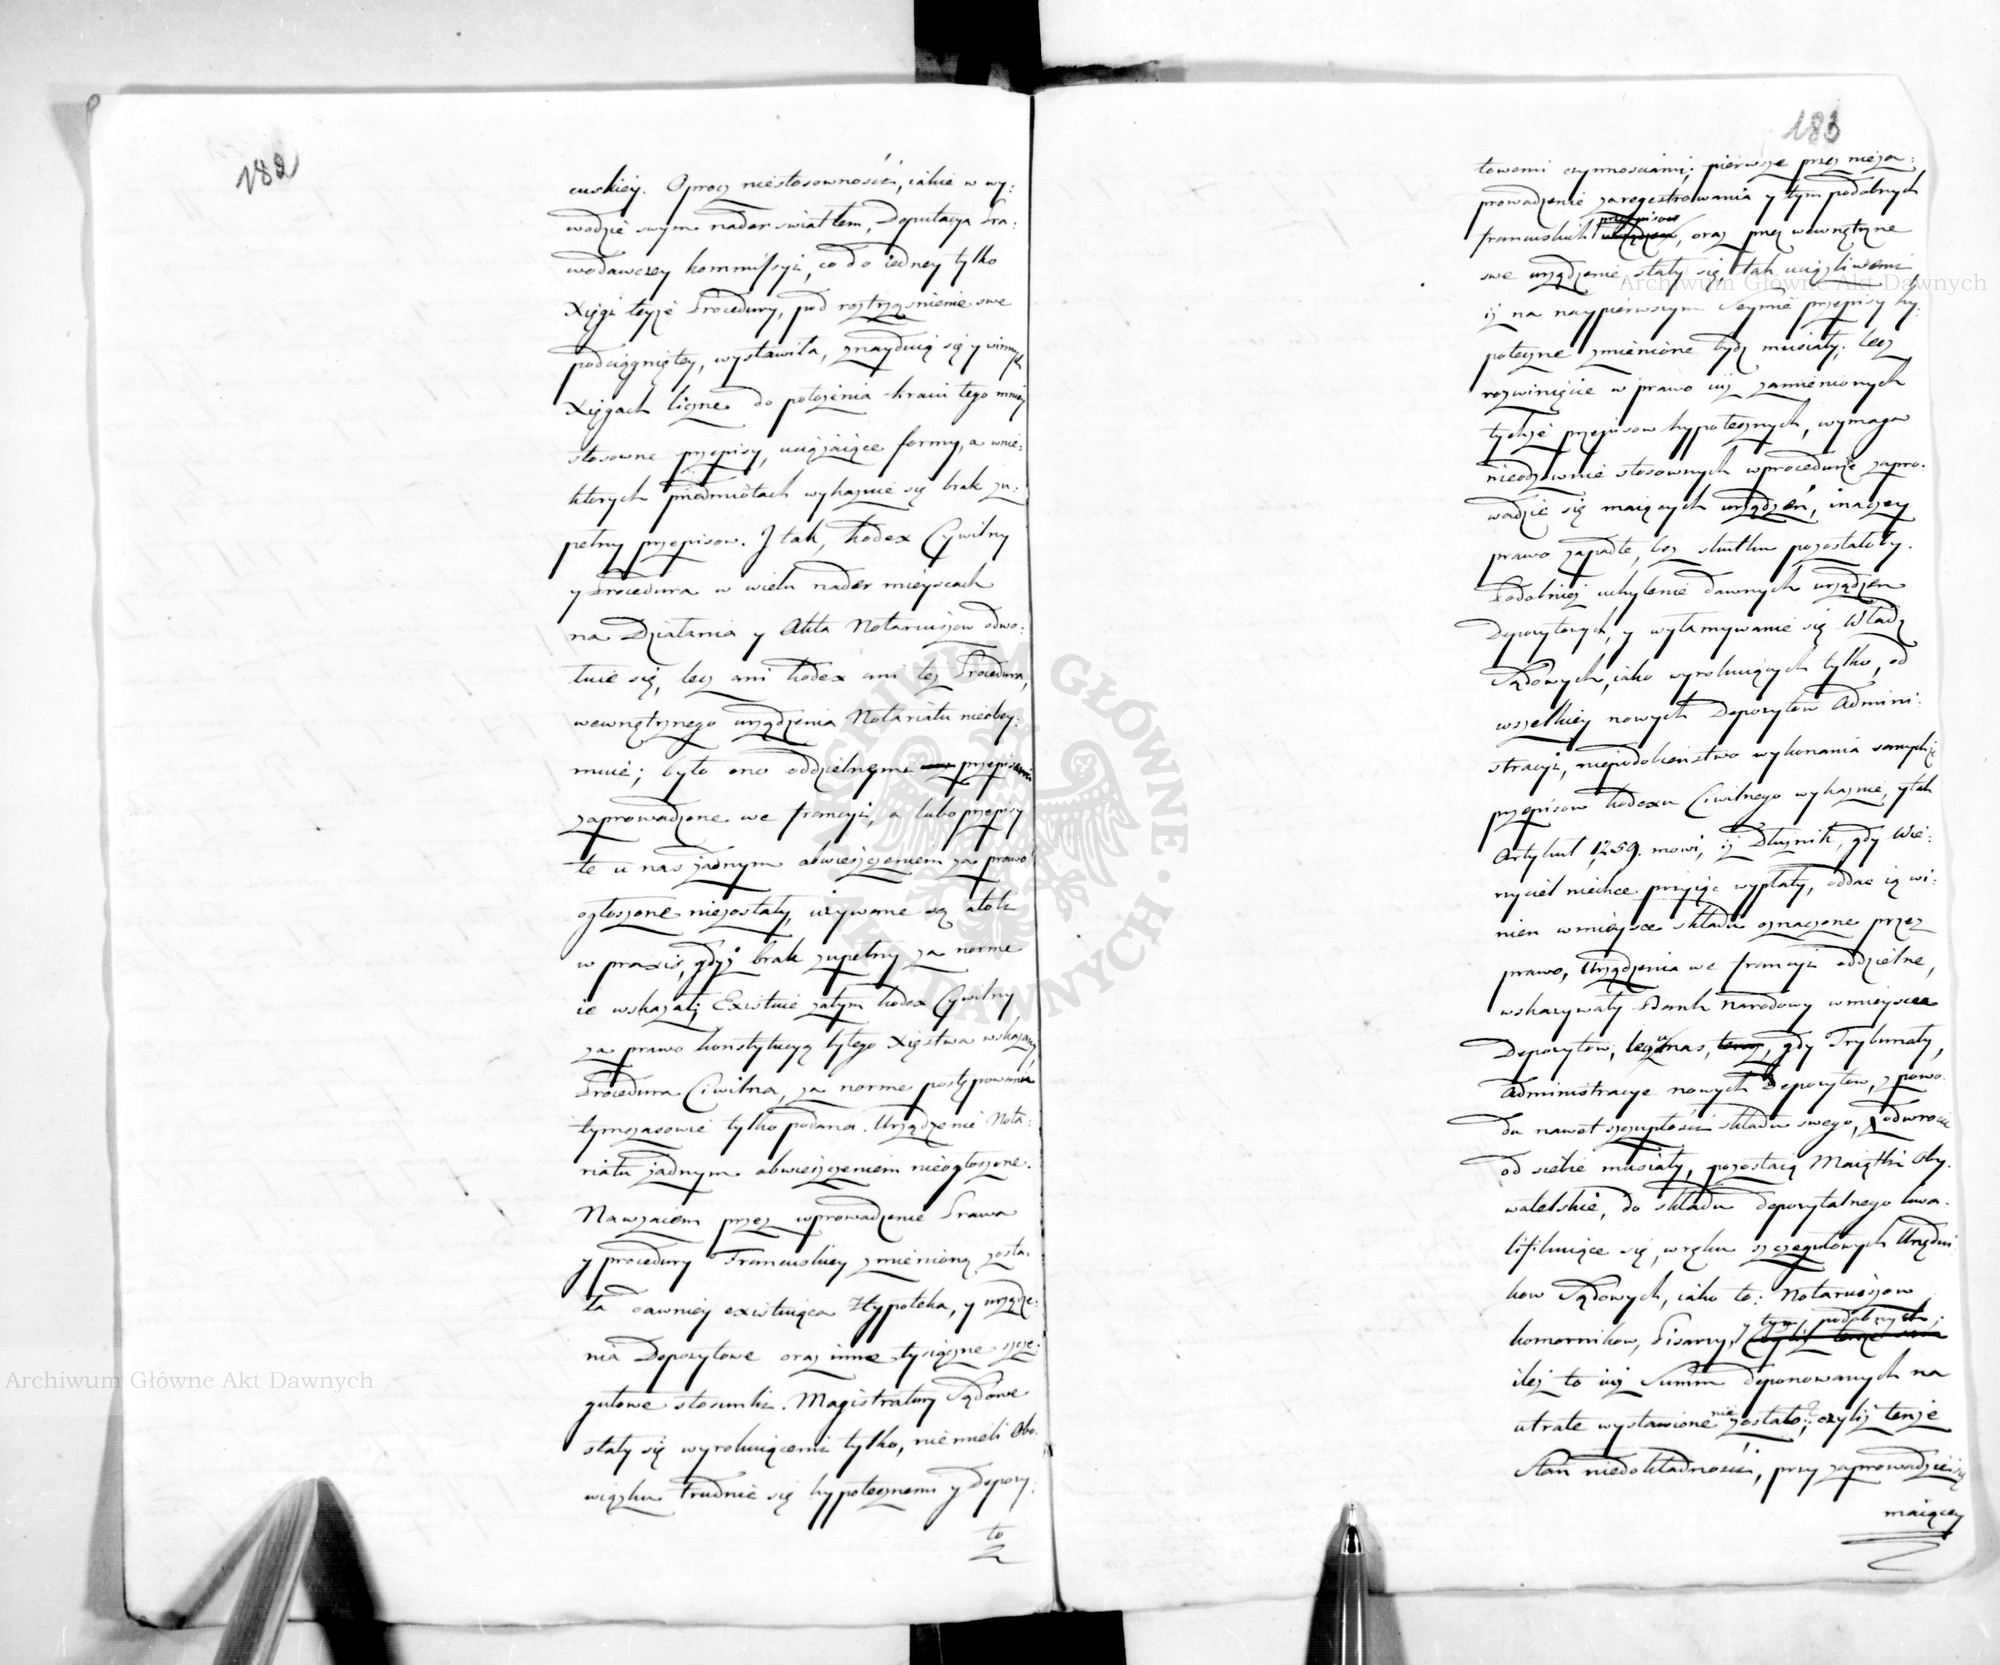 182
cuskiey. Oprocz niestosownosći, iakie w wy:
wodzie swym nader swiatłem, Deputacya Pra:
wodawczey kommissyi, co do iedney tylko
Xięgi teyże Procedury, pod roztrząsnienie swe
podciągnięley, wystawiła, znayduią się y winnych
Xięgach liczne do położenia kraiu tego mniey
stosowne przepisy, uciążaiące formy, a wnie:
ktorych przedmiotach wykazuie się brak zu:
pełny przepisow. J tak, kodex Cywilny
y Procedura w wielu nader mieyscach
na Działania y Akta Notariuszow odwo:
łuie się, lecz ani kodex ani też Procedura,
wewnętrznego urządzenia Notariatu nieobey:
muie; było ono oddzielnymi przepisami
zaprowadzone we francyi, a lubo przepisy
te u nas żadnym obwieszczeniem za prawo
ogłoszone niezostały, używane są atoli
w praxis, gdyż brak zupełny za norme
ie wskazał; Existuie zatym kodex Cywilny
za prawo konstytucyą tytego Xięstwa wskazany,
Procedura Cywilna, za norme postępowania
tymczasowie tylko podana. Urządzenie Nota:
riatu żadnym obwieszczeniem nieogłoszone.
Nawzaiem przez wprowadzenie Prawa
y procedury Francuskiey zmienioną zosta:
ła dawniey existuiąca Hypoteka, y urządze:
nia Depozytowe oraz inne tysiączne szcze:
gułowe stosunki. Magistratury Sądowe
stały się wyrokuiącemi tylko, niemieli Obo:
wiązku trudnić się hypotecznemi y Depozy:
to
183
towemi czynnosciami; pierwsze przez nieza:
prowadzenie zaregestrowania y tym podobnych
francuskich przepisow, oraz przez wewnętrzne
swe urządzenie stały się tak uciążliwemi
iż na naypierwszym Seymie przepisy hy:
poteczne zmienione bydź musiały; lecz
rozwinięcie w prawo iuż zamienionych
tychże przepisow hypotecznych, wymaga
nieodzownie stosownych wprocedurze zapro:
wadzić się maiących urządzeń, inaczey
prawo zapadłe, bez skutku pozostałoby.
Podobnież uchylenie dawnych urządzen
Depozytowych, y wyłamywanie się Władz
Sądowych, iako wyrokuiących tylko, od
wszelkiey nowych Depozytow Admini:
stracyi, niepodobieństwo wykonania samychże
przepisow kodexu Civilnego wykazuie, ytak
Artykuł 1259. mowi, iż Dłużnik, gdy Wie:
rzyciel niechce przyiąć wypłaty, oddać ią wi:
nien wmieysce składu oznaczone przez
prawo, Urządzenia we francyi oddzielne,
wskazywały Bank Narodowy wmieysce
Depozytow, lecz unas, gdy Trybunały,
Administracye nowych Depozytow, z powo:
du nawet szczupłości składu swego, odwrocić
od siebie musiały, pozostaią Maiątki Oby:
watelskie, do składu depozytalnego kwa:
lifikuiące się, w ręku szczegułowych Urzędni:
kow Sądowych, iako to: Notariuszow
komornikow, Pisarzy, y tym podobnych,
ileż to iuż Summ deponowanych na
utrate wystawione nie zostało? czyliż tenże
Stan niedokładności, przy zaprowadzić się
maiącey
Archiwum Główne Akt Dawnych
Archiwum Główne Akt Dawnych
ARCHIWUM GŁÓWNE AKT DAWNYCH